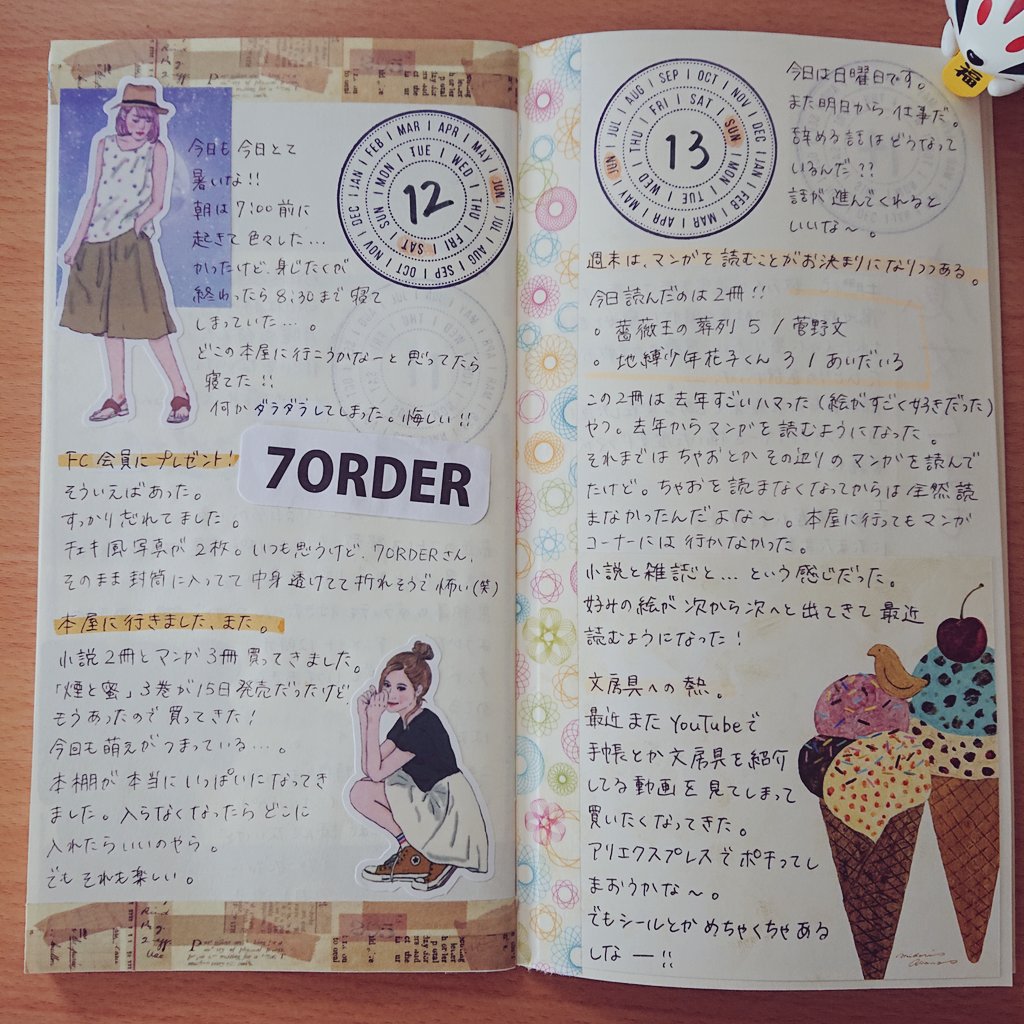 12
JAN | FEB | MAR | APR | MAY | JUN | JUL | AUG | SEP | OCT | NOV | DEC
SUN | MON | TUE | WED | THU | FRI | SAT
今日も今日とて
暑いな!!
朝は7:00前に
起きて色々した…
かったけど、身じたくが
終わったら8:30まで寝て
しまっていた…。
どこの本屋に行こうかなーと思ってたら
寝てた!!
何かダラダラしてしまった。悔しい!!
FC会員にプレゼント!
7ORDER
そういえばあった。
すっかり忘れてました。
チェキ風写真が2枚。いつも思うけど、7ORDERさん、
そのまま封筒に入ってて中身透けてて折れそうで怖い(笑)
本屋に行きました、また。
小説2冊とマンガ3冊買ってきました。
「煙と蜜」3巻が15日発売だったけど
もうあったので買ってきた!
今回も萌えがつまっている…。
本棚が本当にいっぱいになってき
ました。入らなくなったらどこに
入れたらいいのやら。
でもそれも楽しい。
13
JAN | FEB | MAR | APR | MAY | JUN | JUL | AUG | SEP | OCT | NOV | DEC
SUN | MON | TUE | WED | THU | FRI | SAT
今日は日曜日です。
また明日から仕事だ。
辞める話はどうなって
いるんだ??
話が進んでくれると
いいな〜。
週末は、マンガを読むことがお決まりになりつつある。
今日読んだのは2冊!!
。薔薇王の葬列 5 / 菅野文
。地縛少年花子くん 3 / あいだいろ
この2冊は去年すごいハマった(絵がすごく好きだった)
やつ。去年からマンガを読むようになった。
それまではちゃおとかその辺りのマンガを読んで
たけど。ちゃおを読まなくなってからは全然読
まなかったんだよな〜。本屋に行ってもマンガ
コーナーには行かなかった。
小説と雑誌と…という感じだった。
好みの絵が次から次へと出てきて最近
読むようになった!
文房具への熱。
最近またYouTubeで
手帳とか文房具を紹介
してる動画を見てしまって
買いたくなってきた。
アリエクスプレスでポチってし
まおうかな〜。
でもシールとかめちゃくちゃある
しなー!!
福